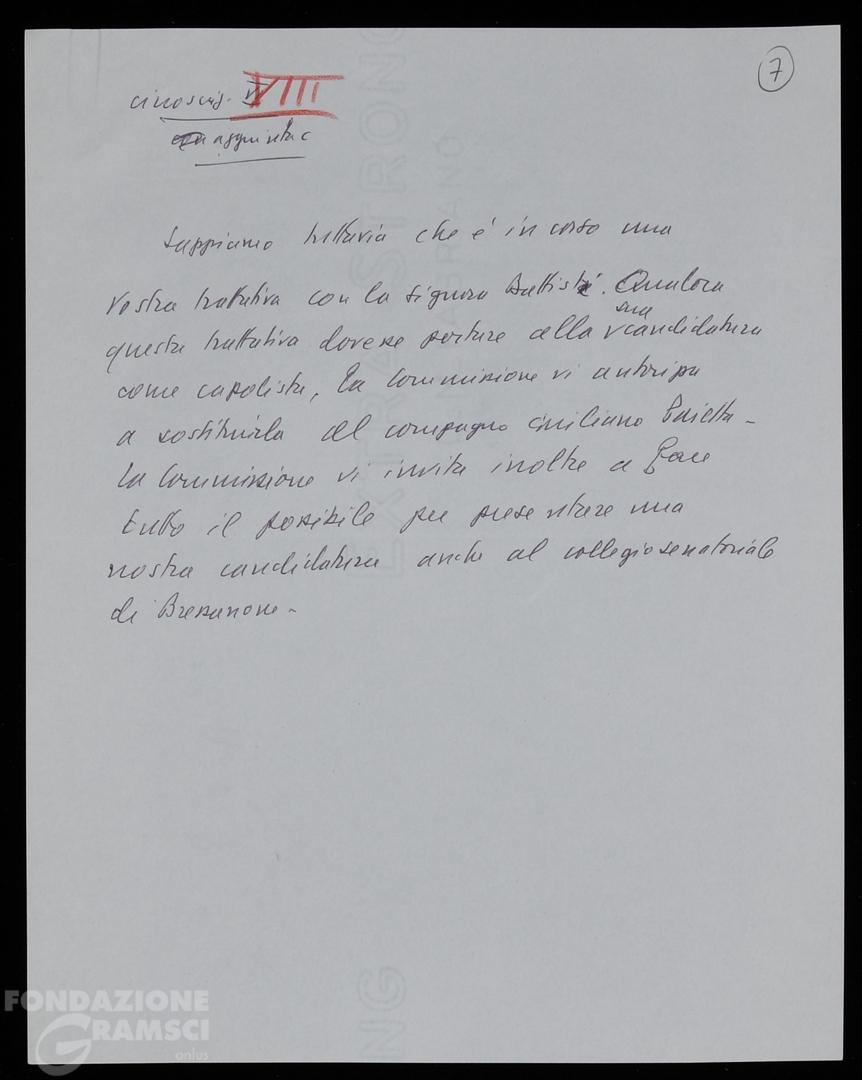 7
VIII
Sappiamo tuttavia che è in corso una
vostra trattativa con la signora Battisti. Qualora
questa trattativa dovesse portare alla sua candidatura
come capolista, la Commissione vi autorizza
a sostituirla al compagno Giuliano Pajetta -
La Commissione vi invita inoltre a fare
tutto il possibile per presentare una
nostra candidatura anche al collegio senatoriale
di Bressanone -
EXTRA STRONG
FABRIANO
NG
FONDAZIONE
GRAMSCI
onlus